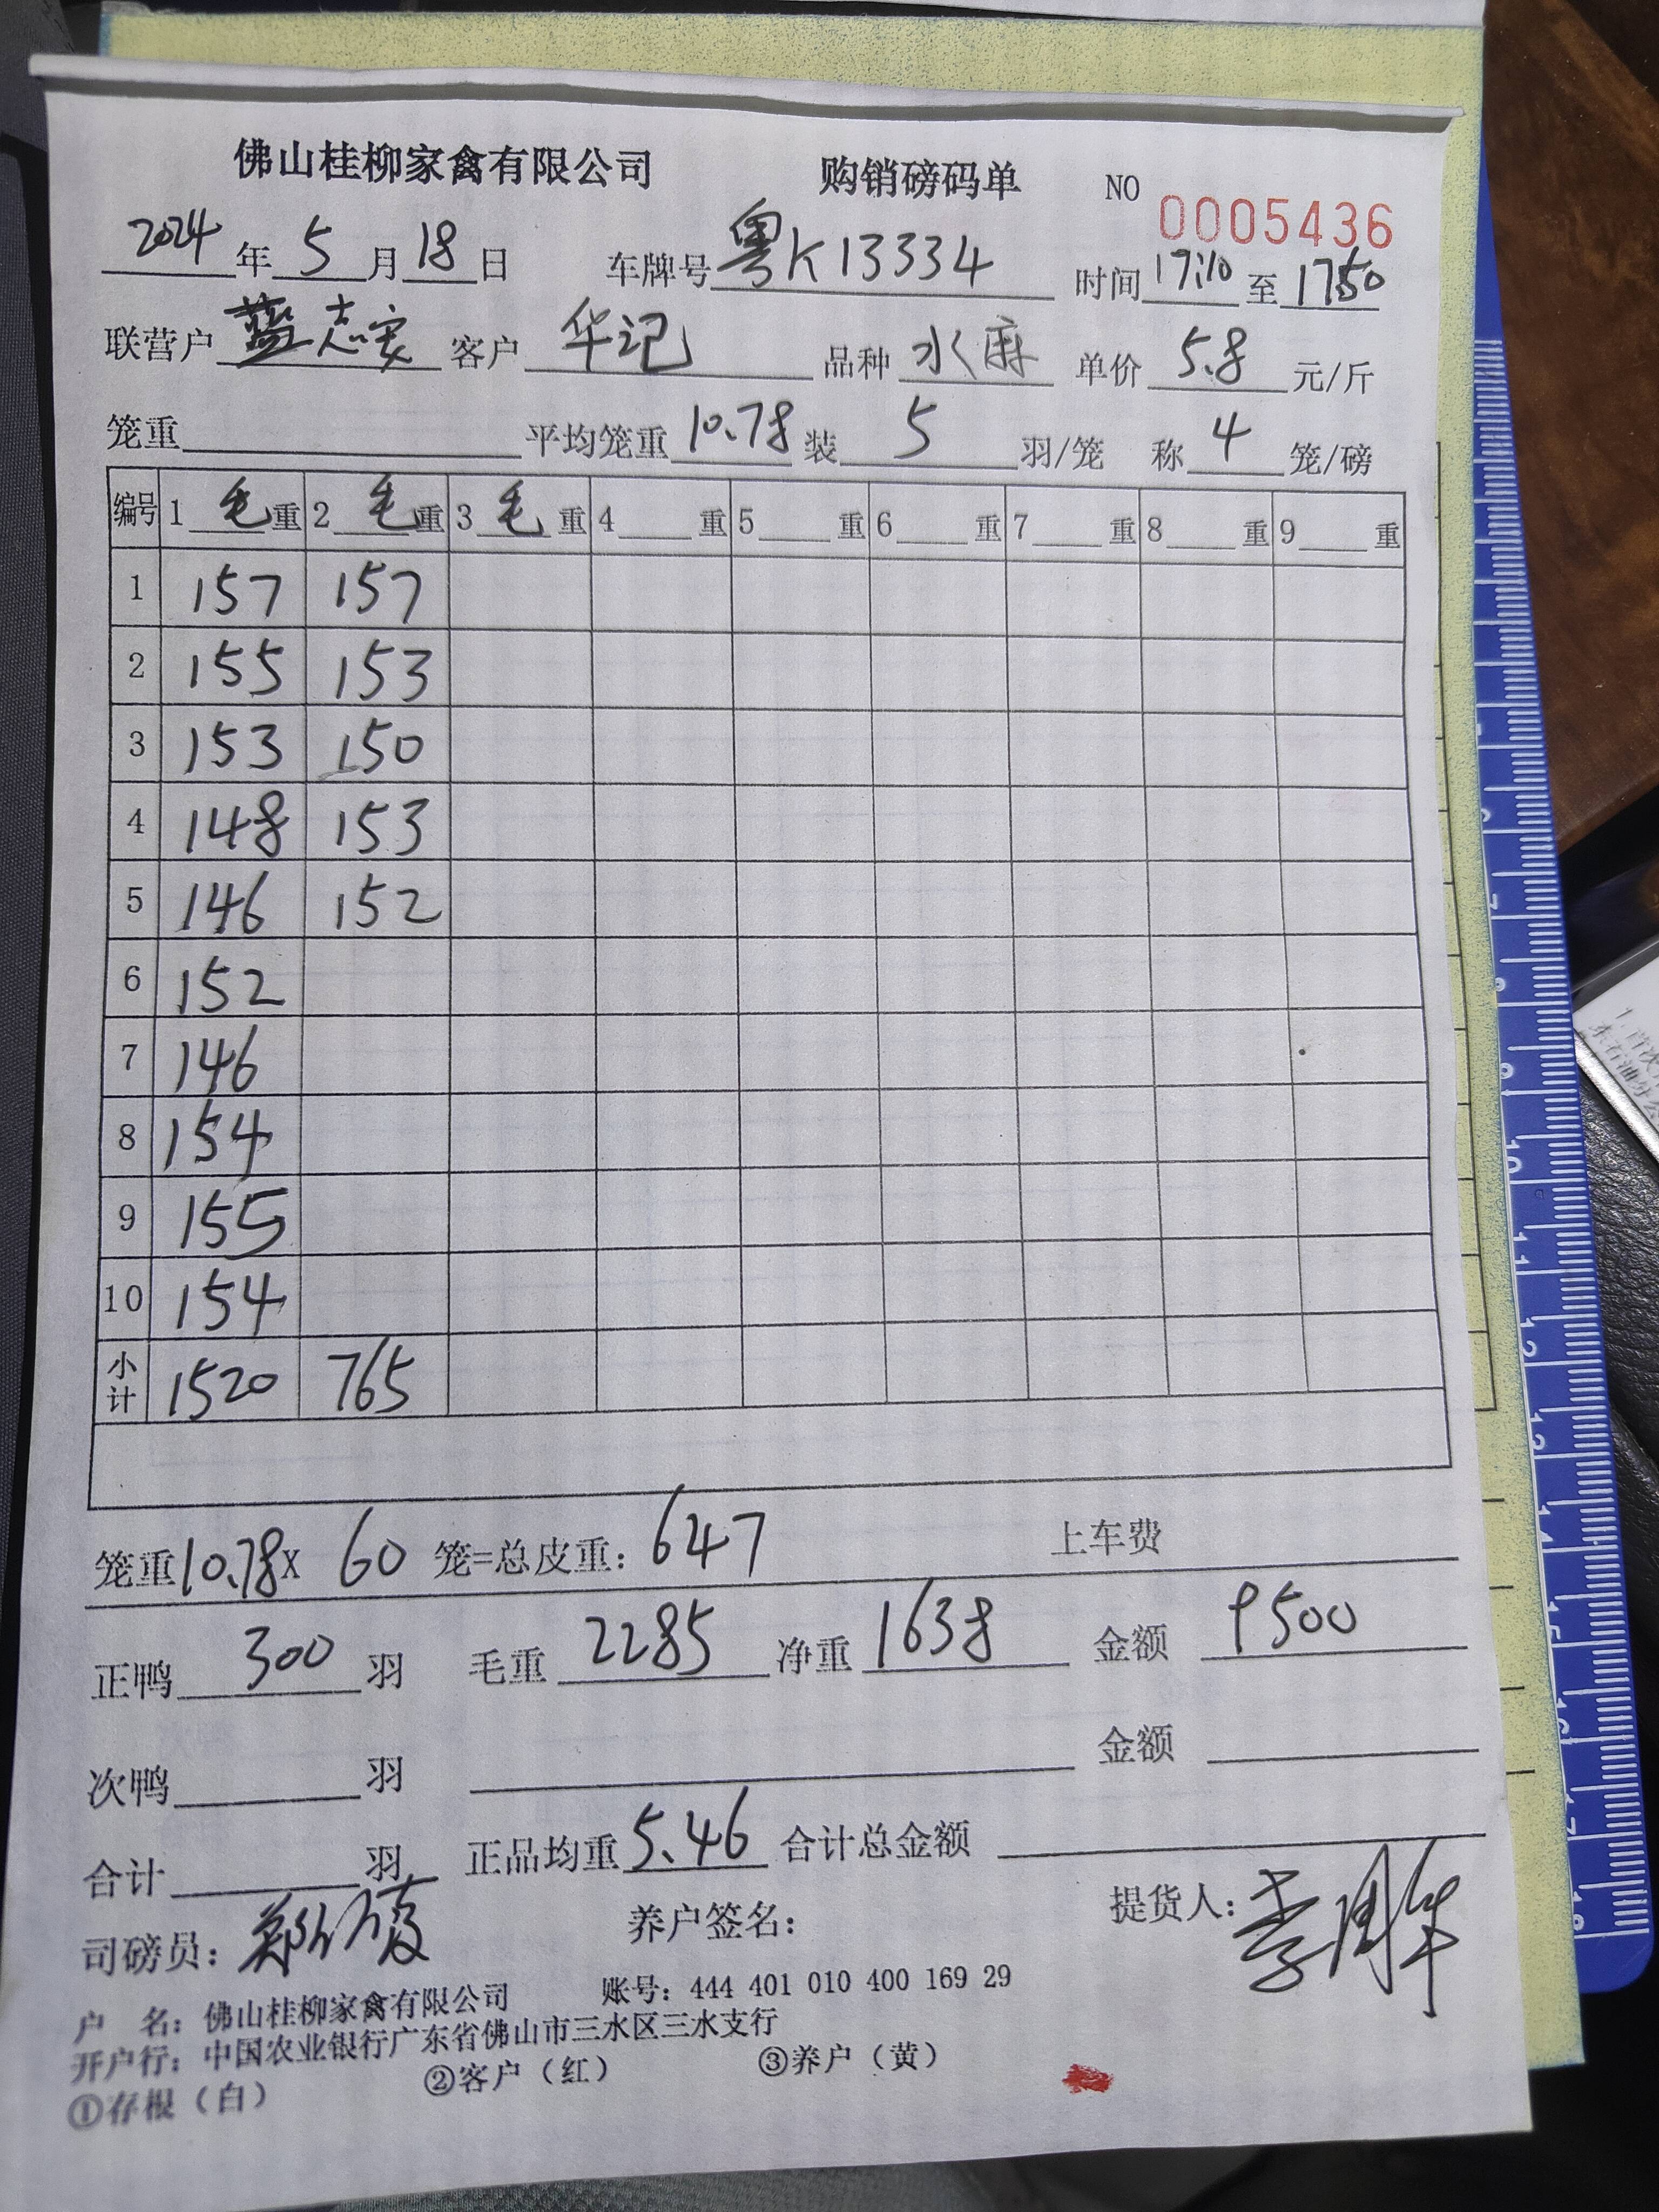 佛山桂柳家禽有限公司 购销磅码单 NO 0005436
2024年5月18日 车牌号粤K13334 时间17:10至17:50
联营户蓝志安 客户华记 品种水麻 单价5.8元/斤
笼重 平均笼重10.78装5羽/笼 称4笼/磅
编号 1毛重 2毛重 3毛重 4重 5重 6重 7重 8重 9重
1 157 157
2 155 153
3 153 150
4 148 153
5 146 152
6 152
7 146
8 154
9 155
10 154
小计 1520 765
笼重10.78X 60笼=总皮重:647 上车费
正鸭300羽 毛重2285净重1638 金额9500
次鸭 羽 金额
合计 羽 正品均重5.46合计总金额
司磅员: 养户签名: 提货人:
户 名:佛山桂柳家禽有限公司 账号:444 401 010 400 169 29
开户行:中国农业银行广东省佛山市三水区三水支行
①存根(白) ②客户(红) ③养户(黄)